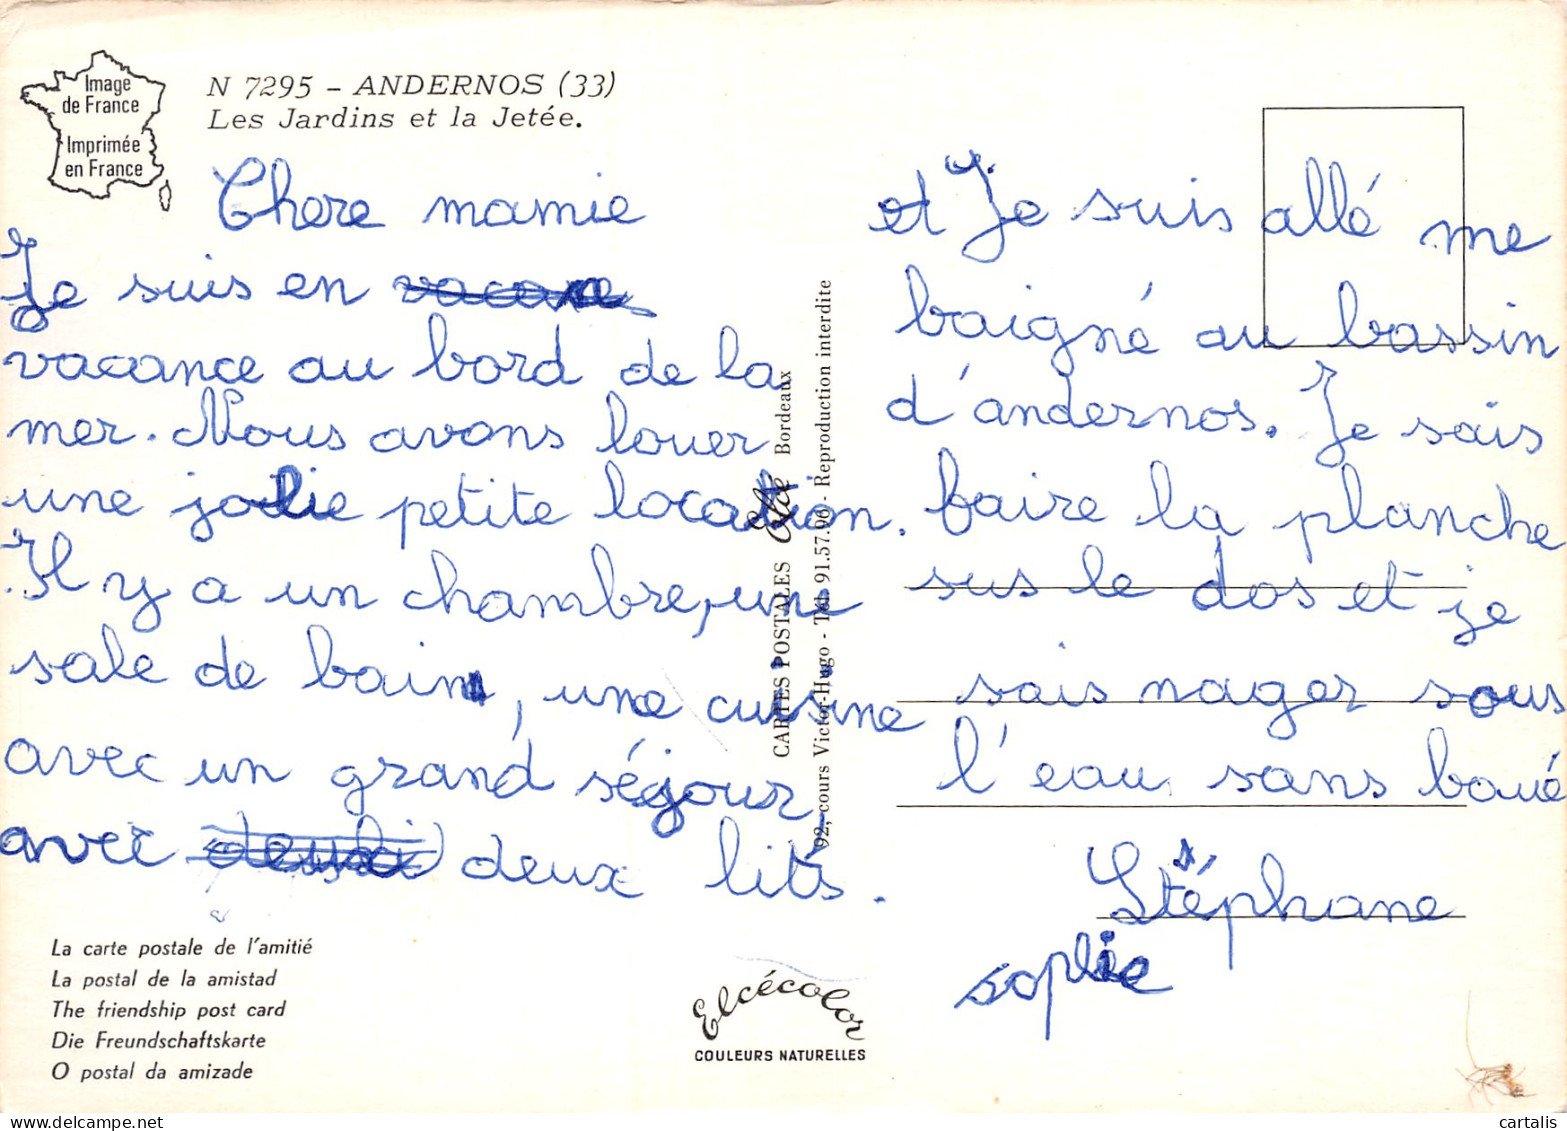 Image
de France
Imprimée
en France
N 7295 - ANDERNOS (33)
Les Jardins et la Jetée.
Chere mamie
Je suis en
vacance au bord de la
mer. Nous avons louer
une jolie petite location.
Il y a un chambre, une
sale de bain, une cuisine
avec un grand séjour,
avec deux lits.
et Je suis allé me
baigné au bassin
d'andernos. Je sais
faire la planche
sus le dos et je
sais nager sous
l'eau sans boué
Stéphane
sophie
CARTES POSTALES Elcé Bordeaux
92, cours Victor-Hugo - Tél. 91.57.96 - Reproduction interdite
La carte postale de l'amitié
La postal de la amistad
The friendship post card
Die Freundschaftskarte
O postal da amizade
Elcécolor
COULEURS NATURELLES
cartalis